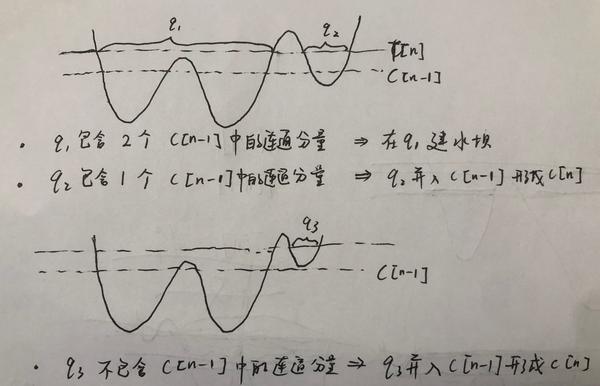 q₁
q₂
T[n]
C[n-1]
• q₁包含2个 C[n-1]中的连通分量 ⇒ 在q₁建水坝
• q₂包含1个 C[n-1]中的连通分量 ⇒ q₂并入C[n-1]形成C[n]
q₃
C[n-1]
• q₃不包含C[n-1]中的连通分量 ⇒ q₃并入C[n-1]形成C[n]